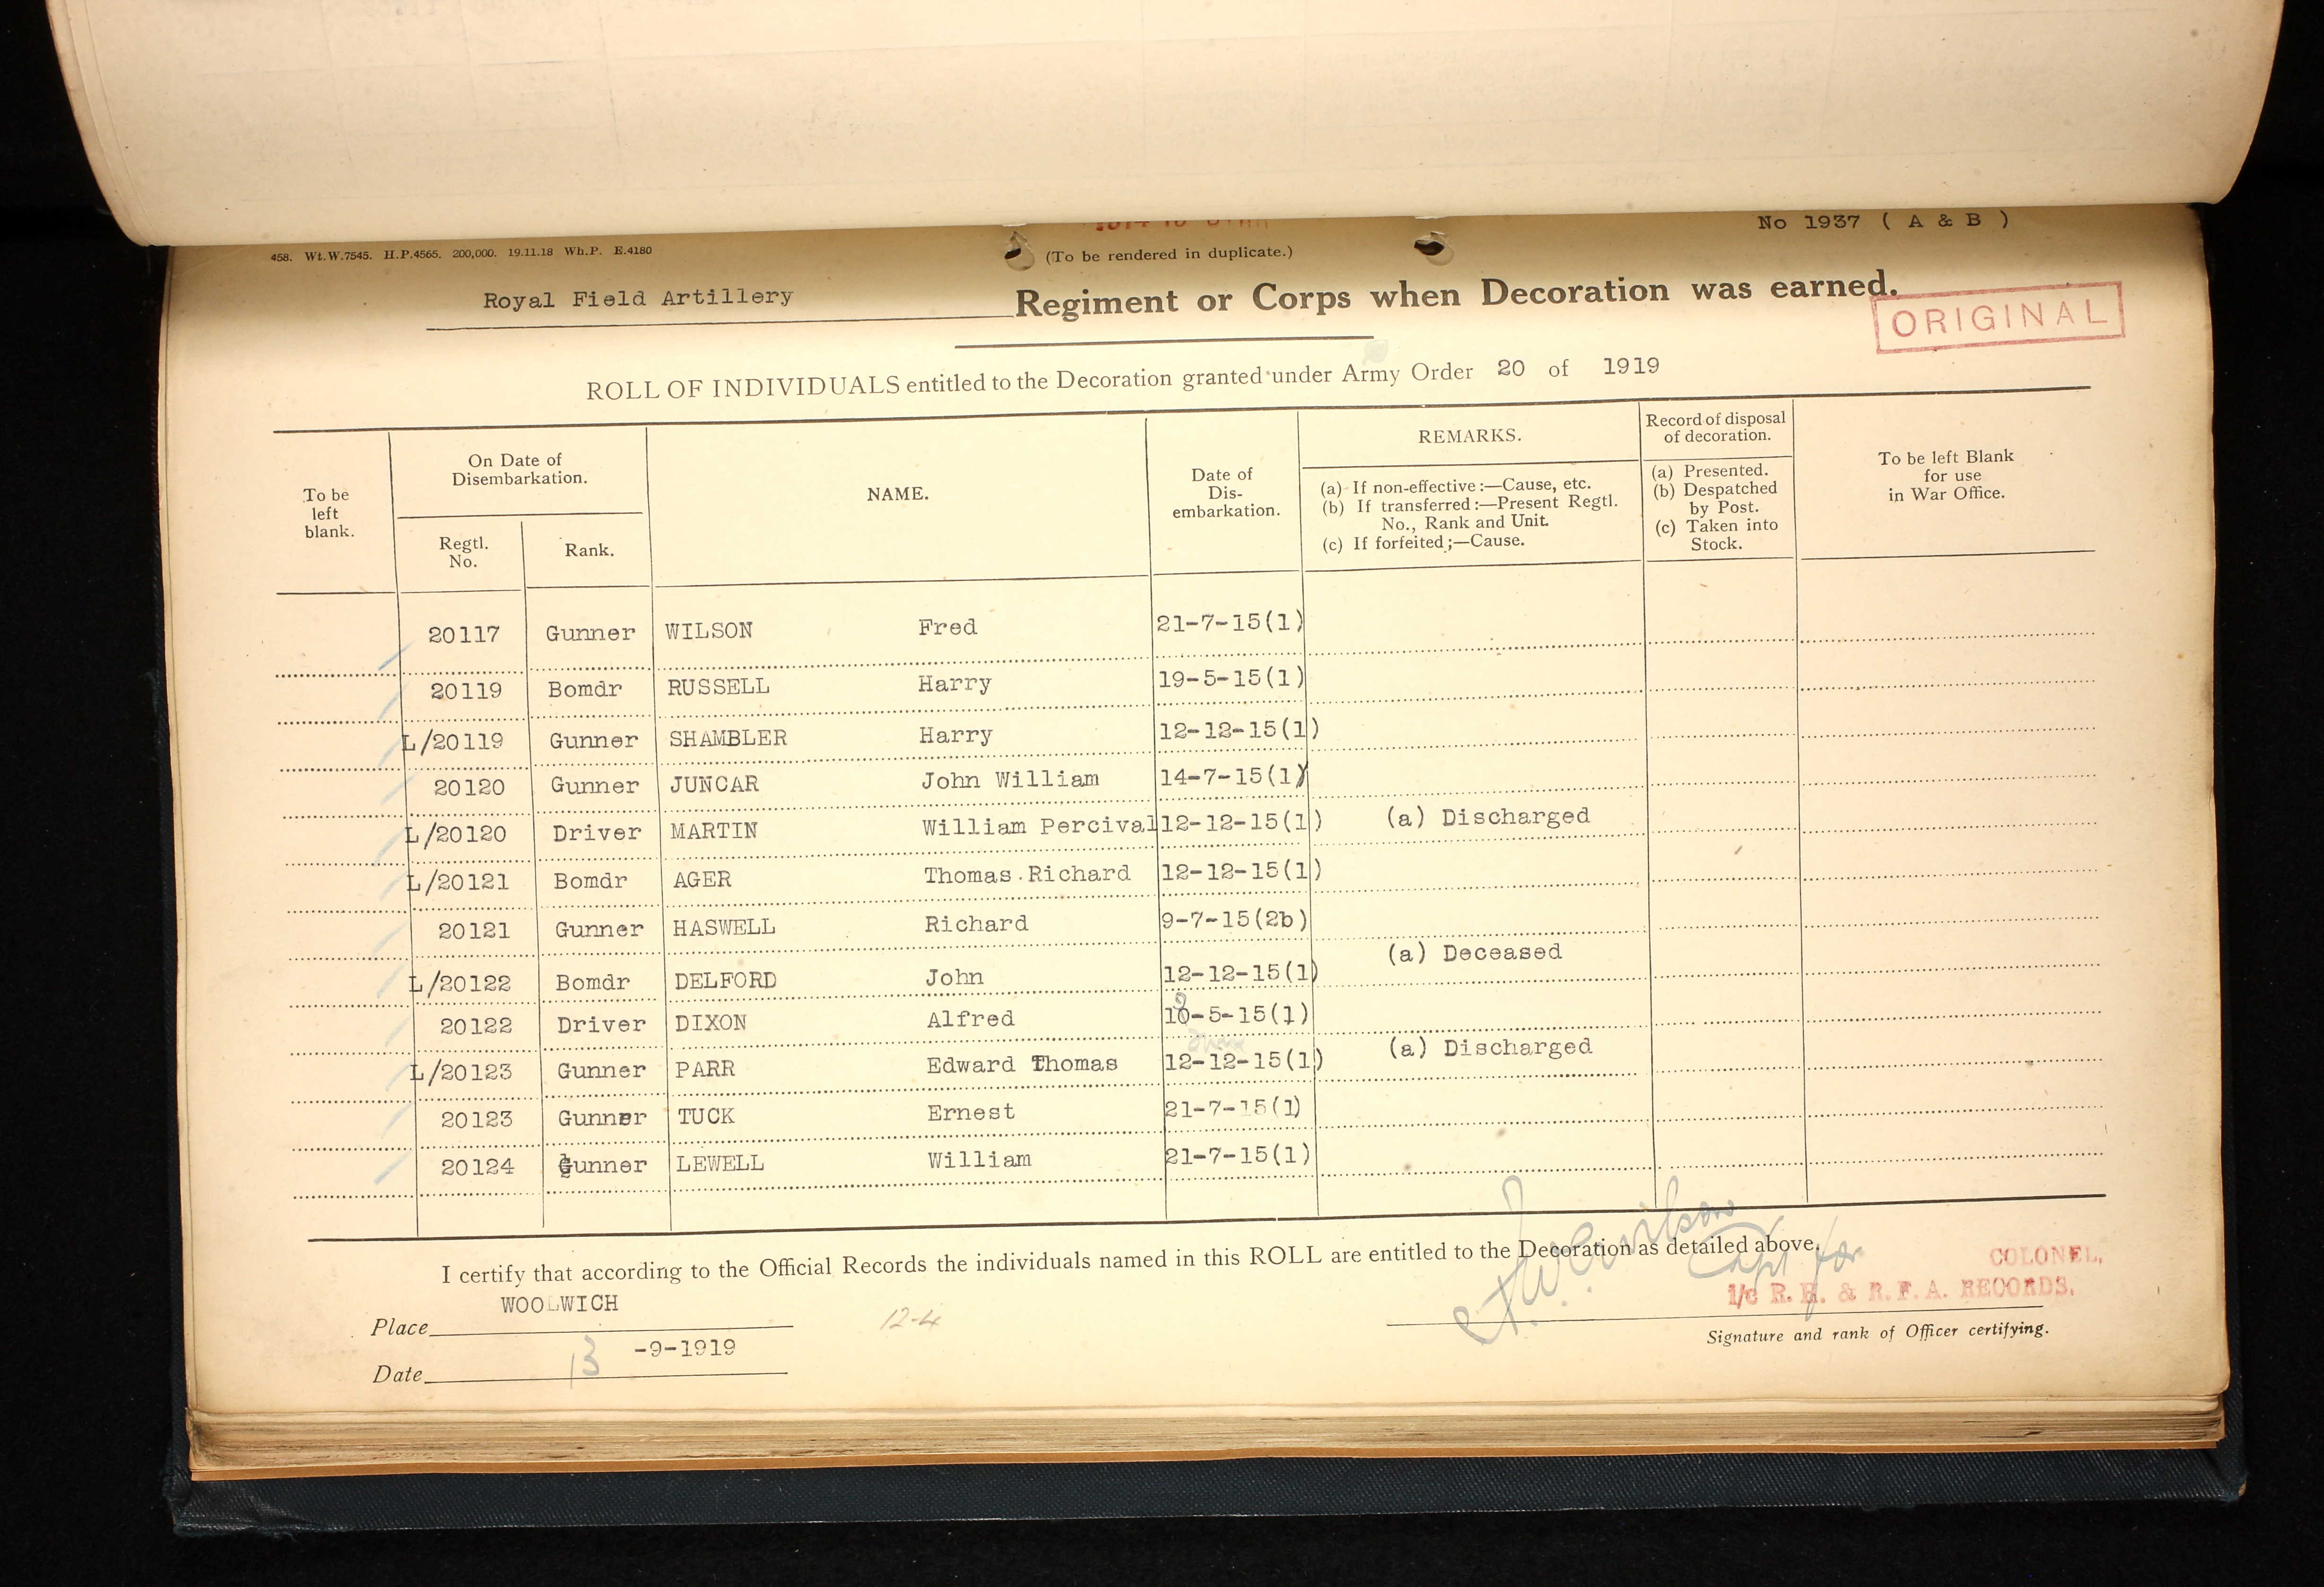 No 1937 ( A & B )
458. Wt.W.7545. H.P.4565. 200,000. 19.11.18 Wh.P. E.4180
(To be rendered in duplicate.)
Royal Field Artillery Regiment or Corps when Decoration was earned.
ORIGINAL
ROLL OF INDIVIDUALS entitled to the Decoration granted under Army Order 20 of 1919
To be left blank.
On Date of Disembarkation.
Regtl. No.
Rank.
NAME.
Date of Dis-embarkation.
REMARKS.
(a) If non-effective:—Cause, etc.
(b) If transferred:—Present Regtl. No., Rank and Unit.
(c) If forfeited;—Cause.
Record of disposal of decoration.
(a) Presented.
(b) Despatched by Post.
(c) Taken into Stock.
To be left Blank for use in War Office.
20117 Gunner WILSON Fred 21-7-15(1)
20119 Bomdr RUSSELL Harry 19-5-15(1)
L/20119 Gunner SHAMBLER Harry 12-12-15(1)
20120 Gunner JUNCAR John William 14-7-15(1)
L/20120 Driver MARTIN William Percival 12-12-15(1) (a) Discharged
L/20121 Bomdr AGER Thomas Richard 12-12-15(1)
20121 Gunner HASWELL Richard 9-7-15(2b)
L/20122 Bomdr DELFORD John 12-12-15(1) (a) Deceased
20122 Driver DIXON Alfred -5-15(1)
L/20123 Gunner PARR Edward Thomas 12-12-15(1) (a) Discharged
20123 Gunner TUCK Ernest 21-7-15(1)
20124 Gunner LEWELL William 21-7-15(1)
I certify that according to the Official Records the individuals named in this ROLL are entitled to the Decoration as detailed above.
Capt for
COLONEL,
I/C R.H. & R.F.A. RECORDS.
Place WOOLWICH
12-4
Signature and rank of Officer certifying.
Date 13 -9-1919